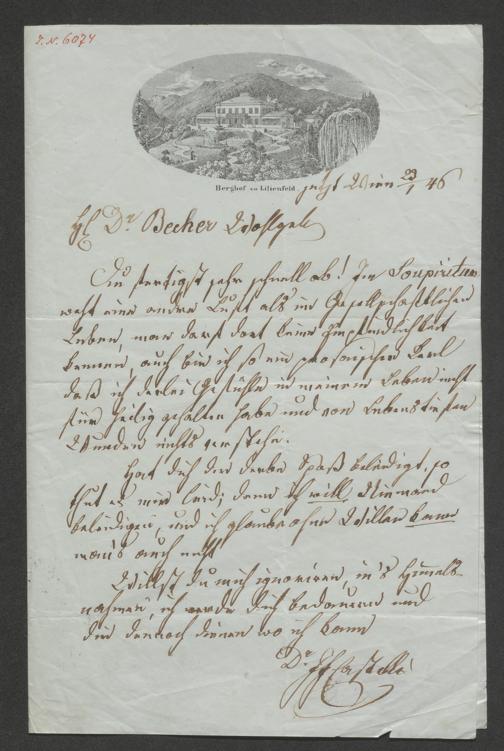 I. N. 6074
Berghof zu Lilienfeld. jetzt Wien 23/1 46
H Dr Becher Wohlgeb
Du fertigst sehr schnell ab! Im Soupiritum
weht eine andre Luft als im Gesellschaftlichen
Leben, man darf dort keine Empfindlichkeit
kennen, auch bin ich so ein prosaischer Kerl
daß ich derlei Gefühle in meinem Leben nicht
für heilig gehalten habe und von Lebenstiefen
Wunden nichts verstehe.
Hat dich der derbe Spaß beleidigt, so
thut es mir leid; denn ich will Niemand
beleidigen, und ich glaube ohne Willen kann
man's auch nicht
Willst du mich ignoriren, in's Himmels-
nahmen, ich werde dich bedauern und
dir dennoch dienen wo ich kann
Dr JF Castelli